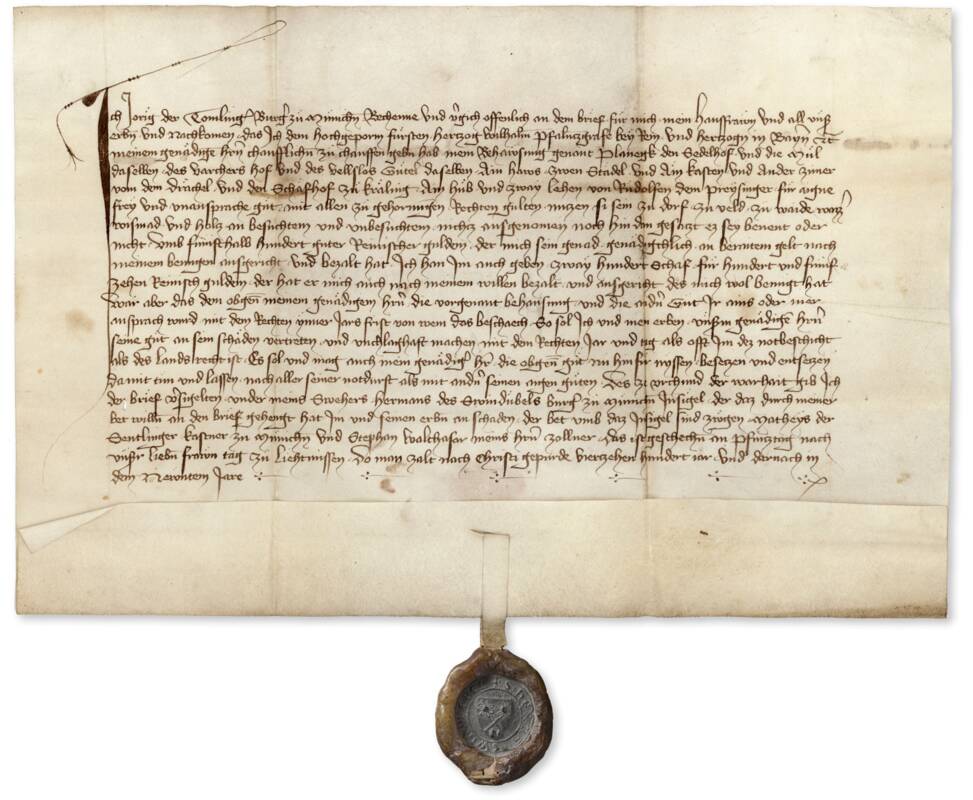 Ich Jorig der Tömling Burger zu München Bechenne und vergich offenlich an dem brief für mich mein Hausfrawen und all unser
erben und Nachkomen das Ich dem Hochgeporn fürsten Hertzog wilhalm Pfallnczgrafe bey Rein und Hertzogn in Bayrn etc
meinem genädigen hern chaufflichen zu chauffen geben hab mein Behawsung genant Planegk den Sedelhof und die Mül
daselben des varchers Hof und des vellslos Gütel daselben Ain haws zwen Stadel und Ain kasten und Ander zimer
von dem drächel und den Schäfhof zu kräling Ain hüb und zway lehen von Rudolfen dem Preysinger für aigne
frey und unansprache güt mit allen zu gehorungen Rechten gülten nüczen si sein zu dorf zu veld zu walde
wismad und holz an besüchten und unbesüchten nichcz ausgenomen noch hindan gesatzt ez sey benent oder
nicht Umb fünfthalb hundert guter Reinischer gulden der mich sein genad genädigchlich an beraitem gelt nach
meinem benügen ausgericht und bezalt hat Ich han Im auch geben zway hundert Schaf für hundert und fünf
zehen Reinisch gulden der hat er mich auch nach meinem willen bezalt und ausgericht des mich wol benügt hat
wär aber das dem obgen meinem genädigem hern die vorgenant behausung und die andern Güt Ir ains oder mer
ansprach würd mit dem Rechten ynner Jars frist von wem das beschaech So sol Ich und mein erben unserm genädigen hern
seine güt an sein schäden vertreten und unchlaghaft machen mit dem Rechten Jar und tag als offt Im dez notbeschicht
als des Lands recht ist Es sol und mag auch mein genädiger her die obgen güt nu hin für nyssen besetzen und entsetzen
damit tün und lassen nach aller seiner notdurft als mit andern seinen aigen güten Des ze urchund der warhait gib Ich
der brief versigelten under meins Swehers Hermans des Stromdübels burger zu München Insigel der daz durch meiner
bet willen an den brief gehengt hat Im und seinen erben an schaden der bet umb daz Insigel sind zewgen Matheys der
Sentlinger kastner zu München und Stephan walthasar meins hern zollner Das ist geschehen an Pfincztag nach
unser lieben frawn tag zu Liehtmissen Do man zalt nach Christi gepürde vierzehen hundert iar und darnach in
dem Newntem Jare